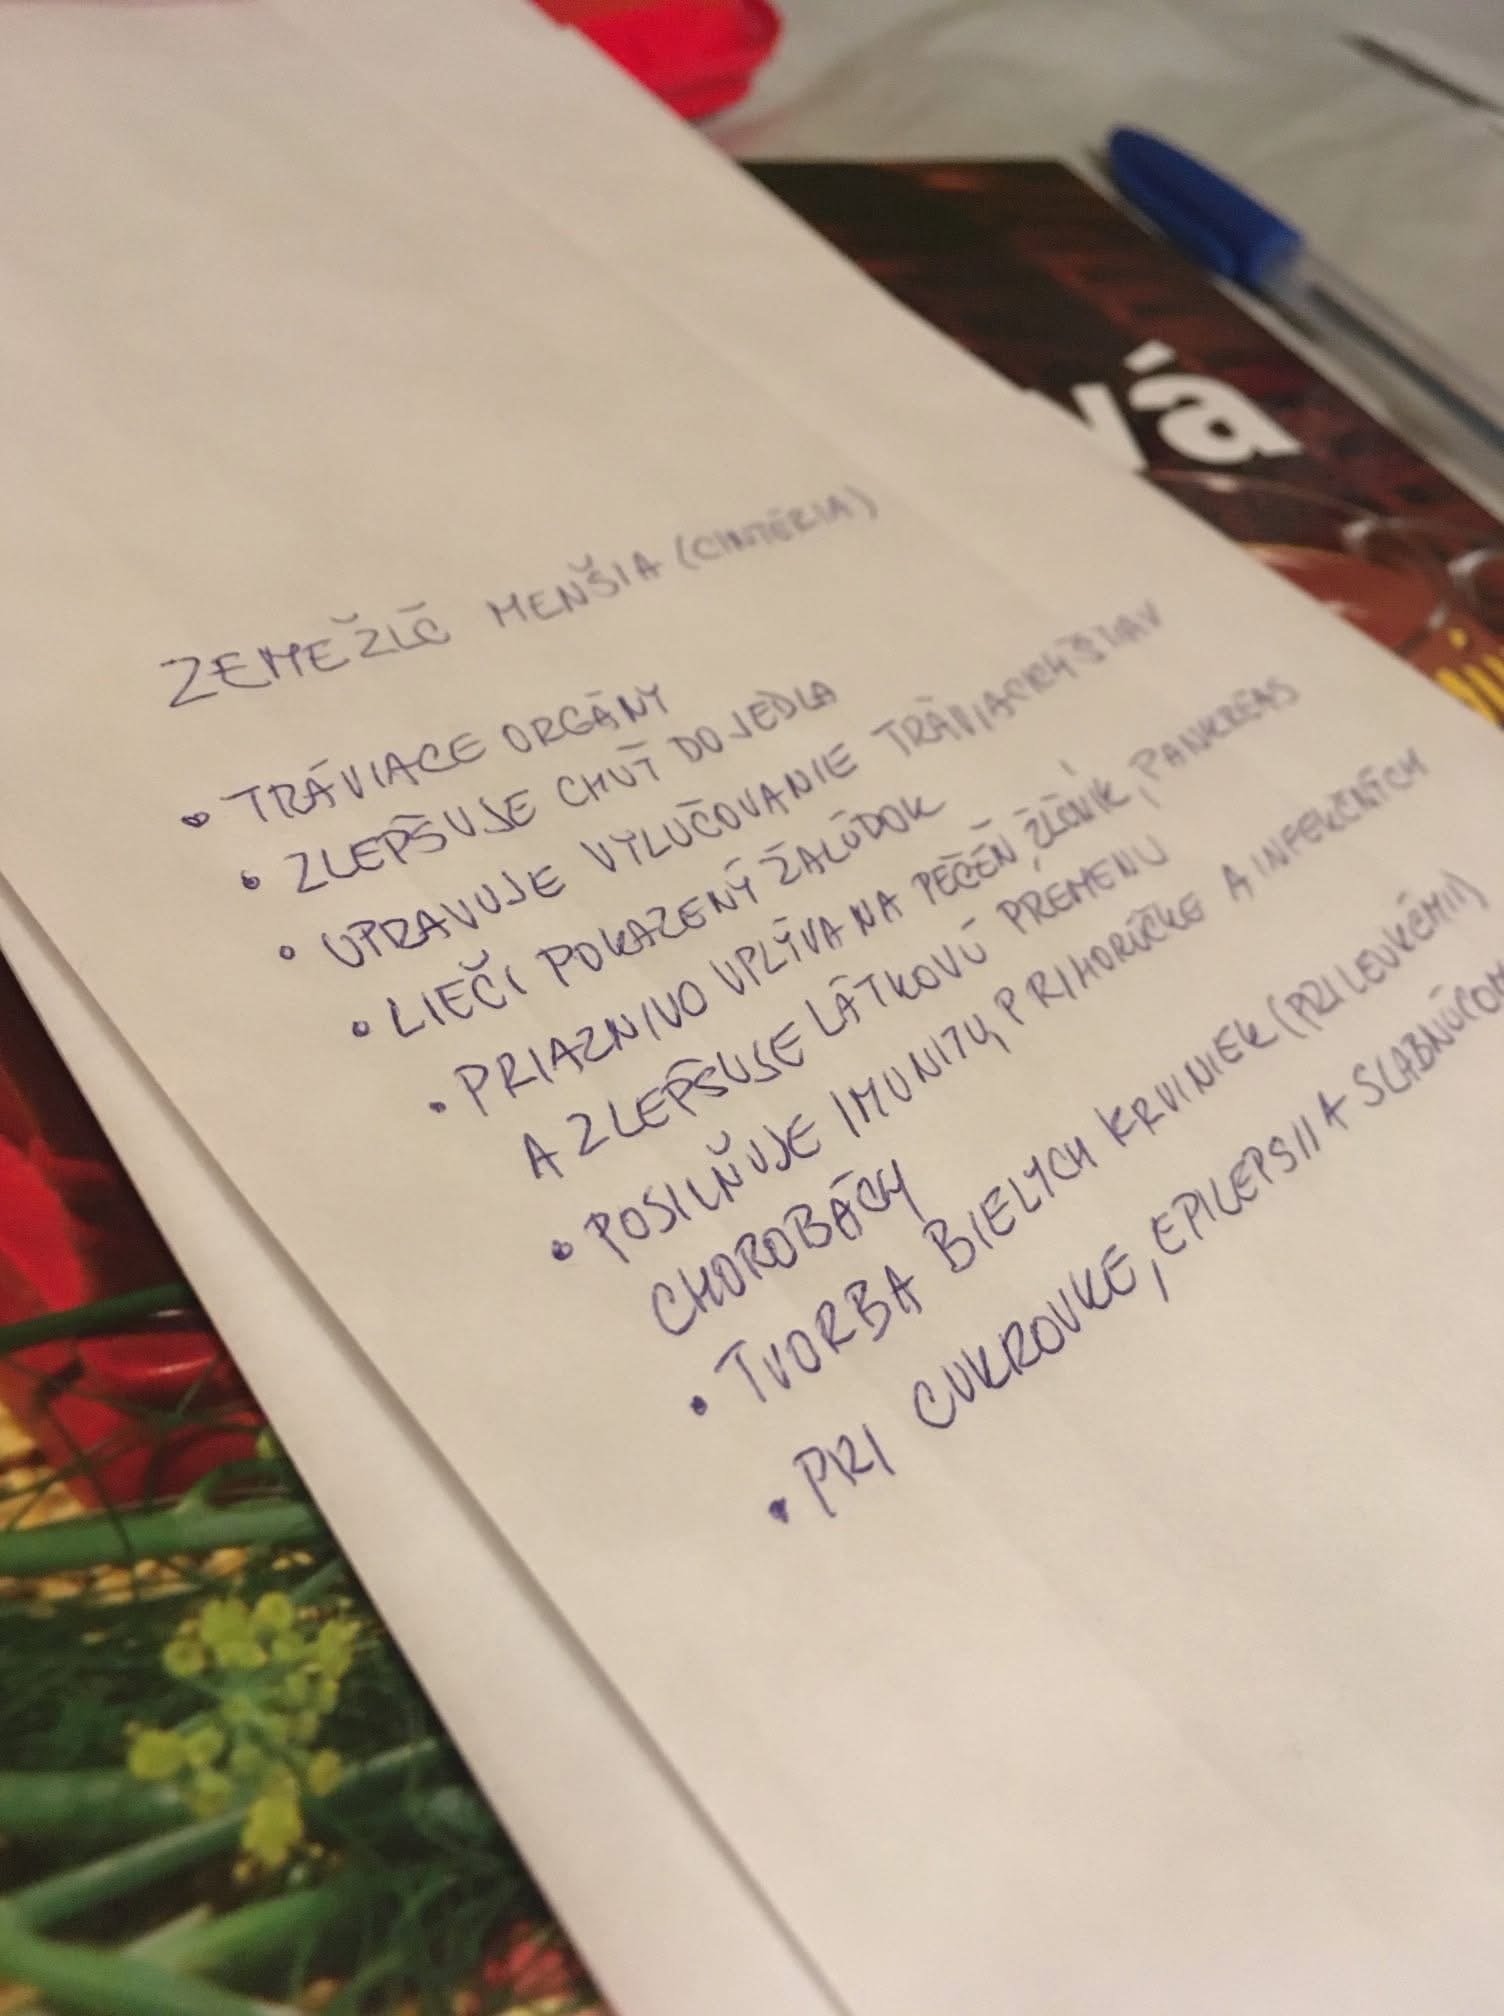 ZEMEŽLČ MENŠIA (CINTÉRIA)
• TRÁVIACE ORGÁNY
• ZLEPŠUJE CHUŤ DO JEDLA
• UPRAVUJE VYLUČOVANIE TRÁVIACICH ŠTIAV
• LIEČI POKAZENÝ ŽALÚDOK
• PRIAZNIVO VPLÝVA NA PEČEŇ, ŽLČNÍK, PANKREAS
A ZLEPŠUJE LÁTKOVÚ PREMENU
• POSILŇUJE IMUNITU, PRI HORÚČKE A INFEKČNÝCH
CHOROBÁCH
• TVORBA BIELYCH KRVINIEK (PRI LEUKÉMII)
• PRI CUKROVKE, EPILEPSII A
vá